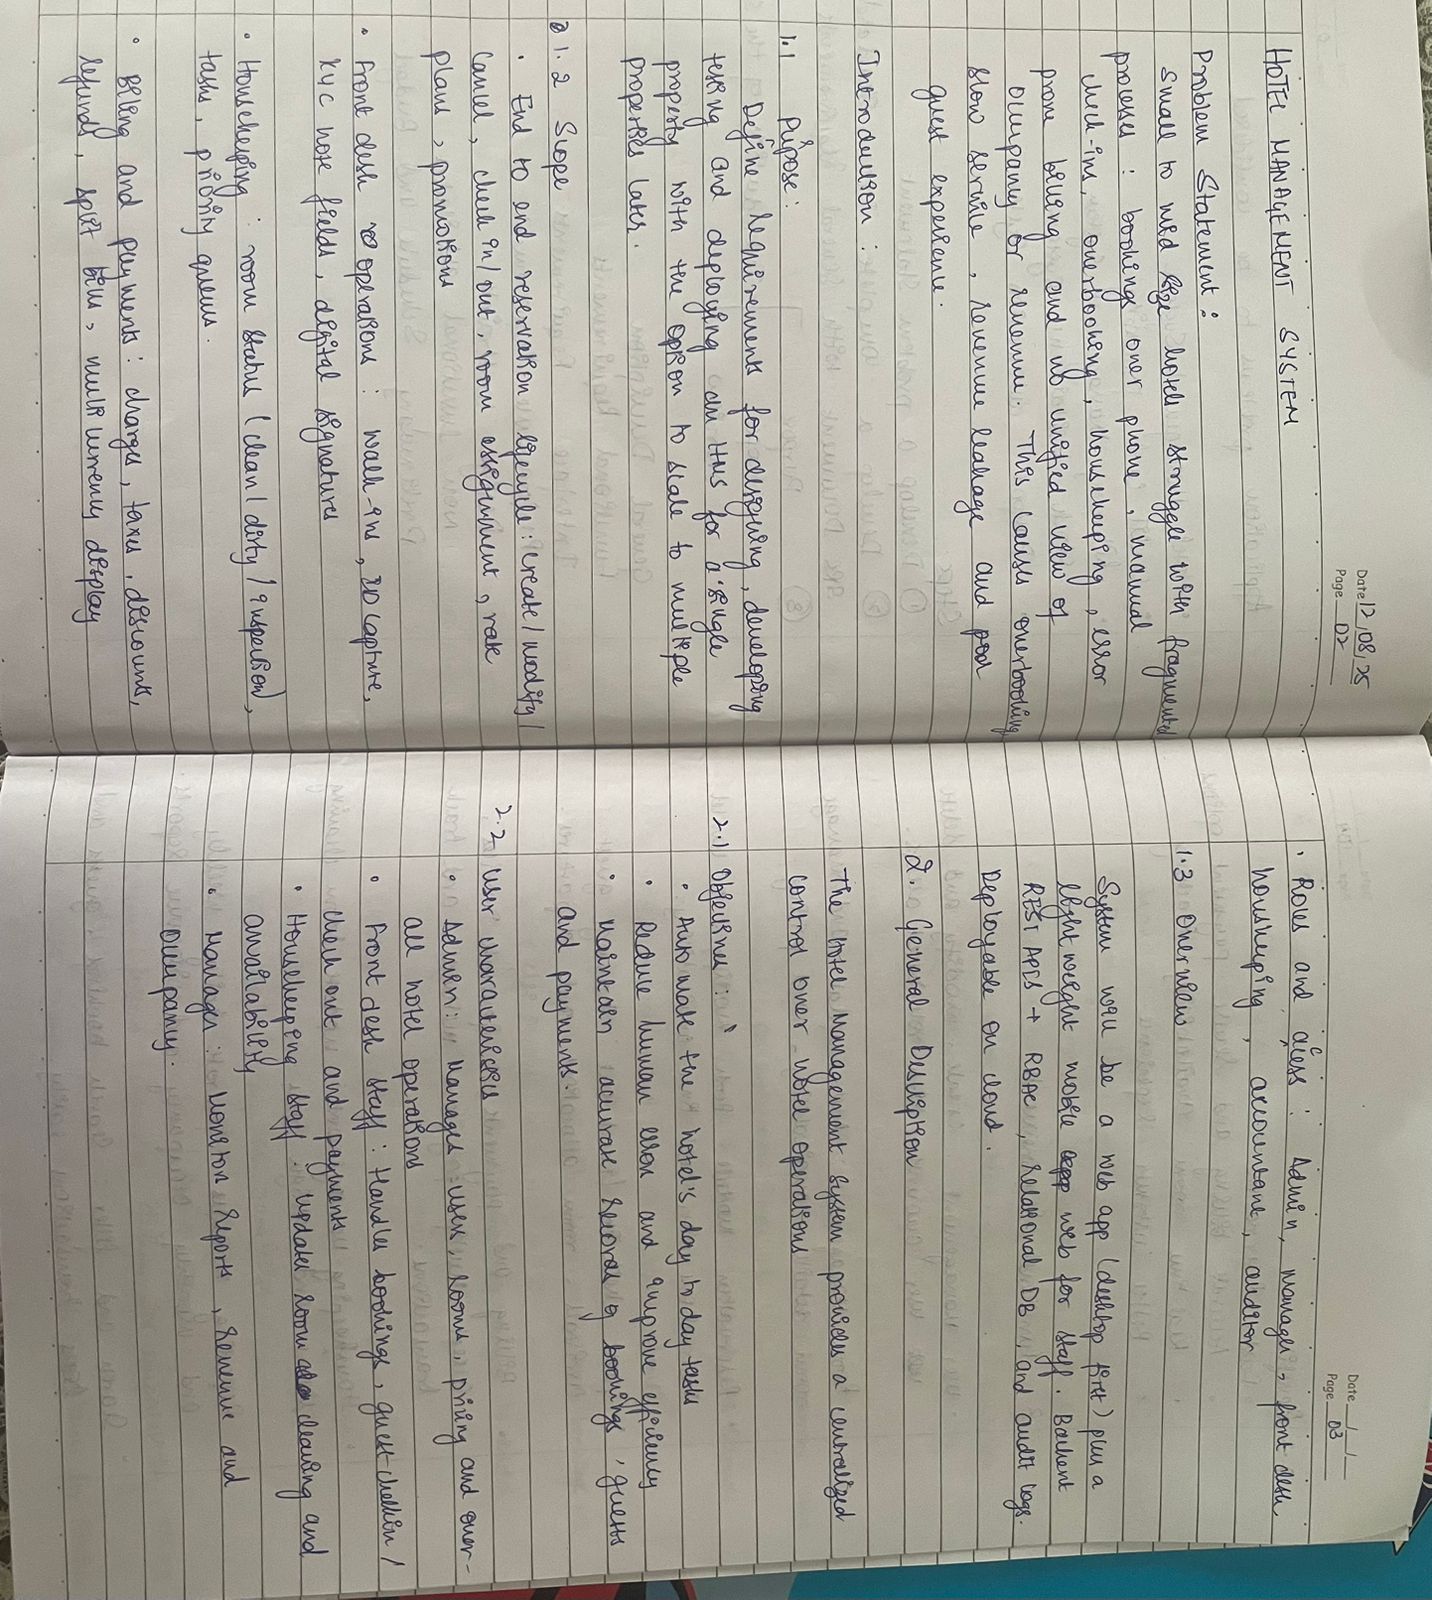 Date 12/08/25
Page 02
HOTEL MANAGEMENT SYSTEM
Problem Statement:
Small to mid size hotels struggle with fragmented
processes: bookings over phone, manual
check-ins, overbooking, housekeeping, error
prone billing and no unified view of
occupancy or revenue. This causes overbooking
slow service, revenue leakage and poor
guest experience.
Introduction:
1.1 Pupose:
Define requirements for designing, developing
testing and deploying an HMS for a single
property with the option to scale to multiple
properties later.
1.2 Scope
• End to end reservation lifecycle: create/modify/
cancel, check in/out, room assignment, rate
plans, promotions
• Front desk operations: walk-ins, ID capture,
KYC note fields, digital signatures
• Housekeeping: room status (clean/dirty/inspection),
tasks, priority queues.
• Billing and payments: charges, taxes, discounts,
refunds, split bills, multi currency display
Date / /
Page 03
• Roles and access: Admin, manager, front desk
housekeeping, accountant, auditor
1.3 Overview
System will be a web app (desktop first) plus a
light weight mobile web for staff. Backend
REST APIs + RBAC, Relational DB, and audit logs.
Deployable on cloud.
2. General Description
The hotel Management System provides a centralized
control over hotel operations
2.1 Objectives:
• Automate the hotel's day to day tasks
• Reduce human error and improve efficiency
• Maintain accurate records of bookings, guests
and payments.
2.2 User characteristics
• Admin: Manages users, rooms, pricing and over-
all hotel operations
• Front desk staff: Handles bookings, guest checkin/
check out and payments
• Housekeeping staff: updates room cleaning and
availability
• Manager: Monitor Reports, Revenue and
occupancy.